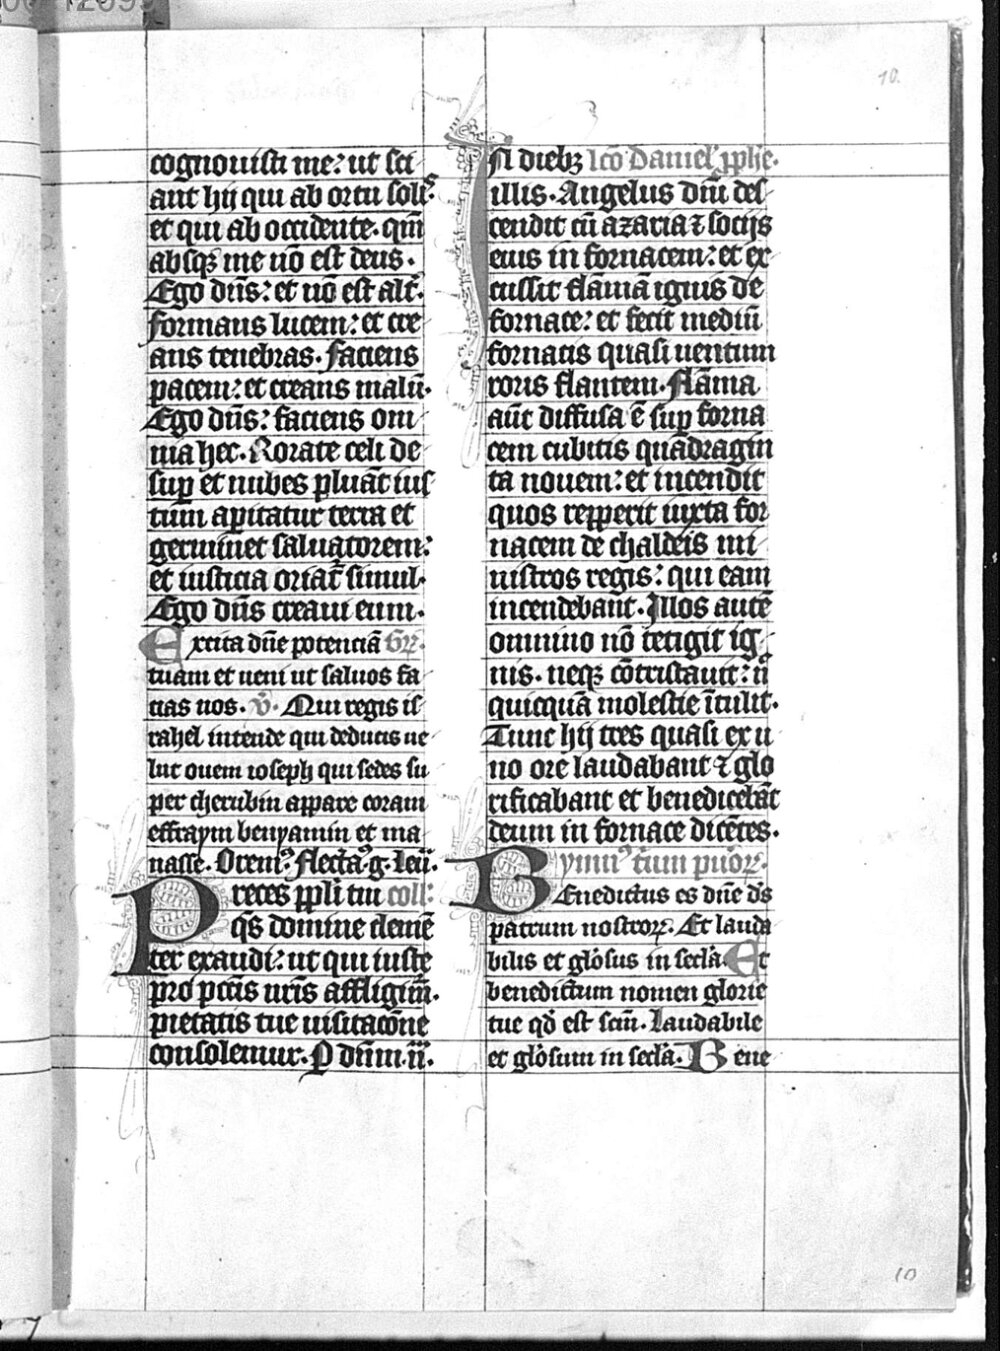 10.
cognouisti me: ut sci
ant hij qui ab ortu solis
et qui ab occidente. qm̄
absq̄ me nō est deus.
Ego dn̄s: et nō est alt̄.
formans lucem: et cre
ans tenebras. faciens
pacem: et creans malū.
Ego dn̄s: faciens om
nia hec. Rorate celi de
sup̄ et nubes pluāt ius
tum ap̄iatur terra et
germinet saluatorem:
et iusticia oriat̄ simul.
Ego dn̄s creaui eum.
Excita dn̄e potenciā Gr̄.
tuam et ueni ut saluos fa
cias nos. v̄. Qui regis is
rahel intende qui deducis ue
lut ouem ioseph qui sedes su
per cherubin appare coram
effraym benyamin et ma
nasse. Orem9 flecta9. g. leu.
Preces ppl̄i tui coll:
qs̄ domine clemē
ter exaudi: ut qui iuste
pro pcc̄is nr̄is affligim̄.
pietatis tue uisitacōne
consolemur. P dn̄m. n̄.
In dieb3 lcō Daniel pph̄e.
illis. Angelus dn̄i des
cendit cū azaria ⁊ socijs
eius in fornacem: et ex
cussit flāmā ignis de
fornace: et fecit mediū
fornacis quasi uentum
roris flantem. Flāma
aūt diffusa ē sup̄ forna
cem cubitis quadragin
ta nouem: et incendit
quos repperit iuxta for
nacem de chaldeis mi
nistros regis: qui eam
incendebant. Illos autē
omnino nō tetigit ig
nis. neq̄ cōtristauit: nc̄
quicquā molestie ītulit.
Tunc hij tres quasi ex u
no ore laudabant ⁊ glo
rificabant et benedicebāt
deum in fornace dicētes.
Ymn9 trium puōr.
Benedictus es dn̄e ds̄
patrum nostror̄. Et lauda
bilis et glōsus in secl̄a. Et
benedictum nomen glorie
tue qd̄ est scm̄. Laudabile
et glōsum in secl̄a. Bene
10